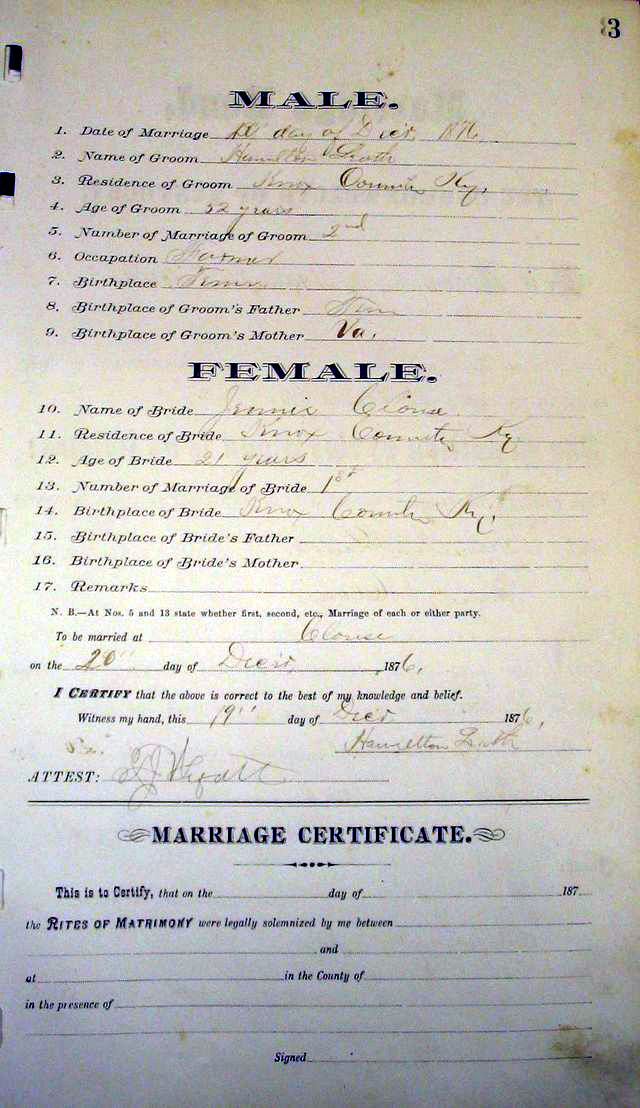 3
MALE.
1. Date of Marriage day of Dec'r 1876
2. Name of Groom Hamilton
3. Residence of Groom Knox County Ky.
4. Age of Groom 52 years
5. Number of Marriage of Groom 2nd
6. Occupation Farmer
7. Birthplace Tenn
8. Birthplace of Groom's Father
9. Birthplace of Groom's Mother Va.
FEMALE.
10. Name of Bride Jennie Clouse
11. Residence of Bride Knox County Ky
12. Age of Bride 21 years
13. Number of Marriage of Bride 1st
14. Birthplace of Bride Knox County Ky.
15. Birthplace of Bride's Father
16. Birthplace of Bride's Mother
17. Remarks
N. B.—At Nos. 5 and 13 state whether first, second, etc., Marriage of each or either party.
To be married at Clouse
on the 20" day of Dec'r, 1876,
I CERTIFY that the above is correct to the best of my knowledge and belief.
Witness my hand, this 19" day of Dec'r 1876,
Hamilton
ATTEST:
MARRIAGE CERTIFICATE.
This is to Certify, that on the day of 187
the RITES OF MATRIMONY were legally solemnized by me between
and
at in the County of
in the presence of
Signed